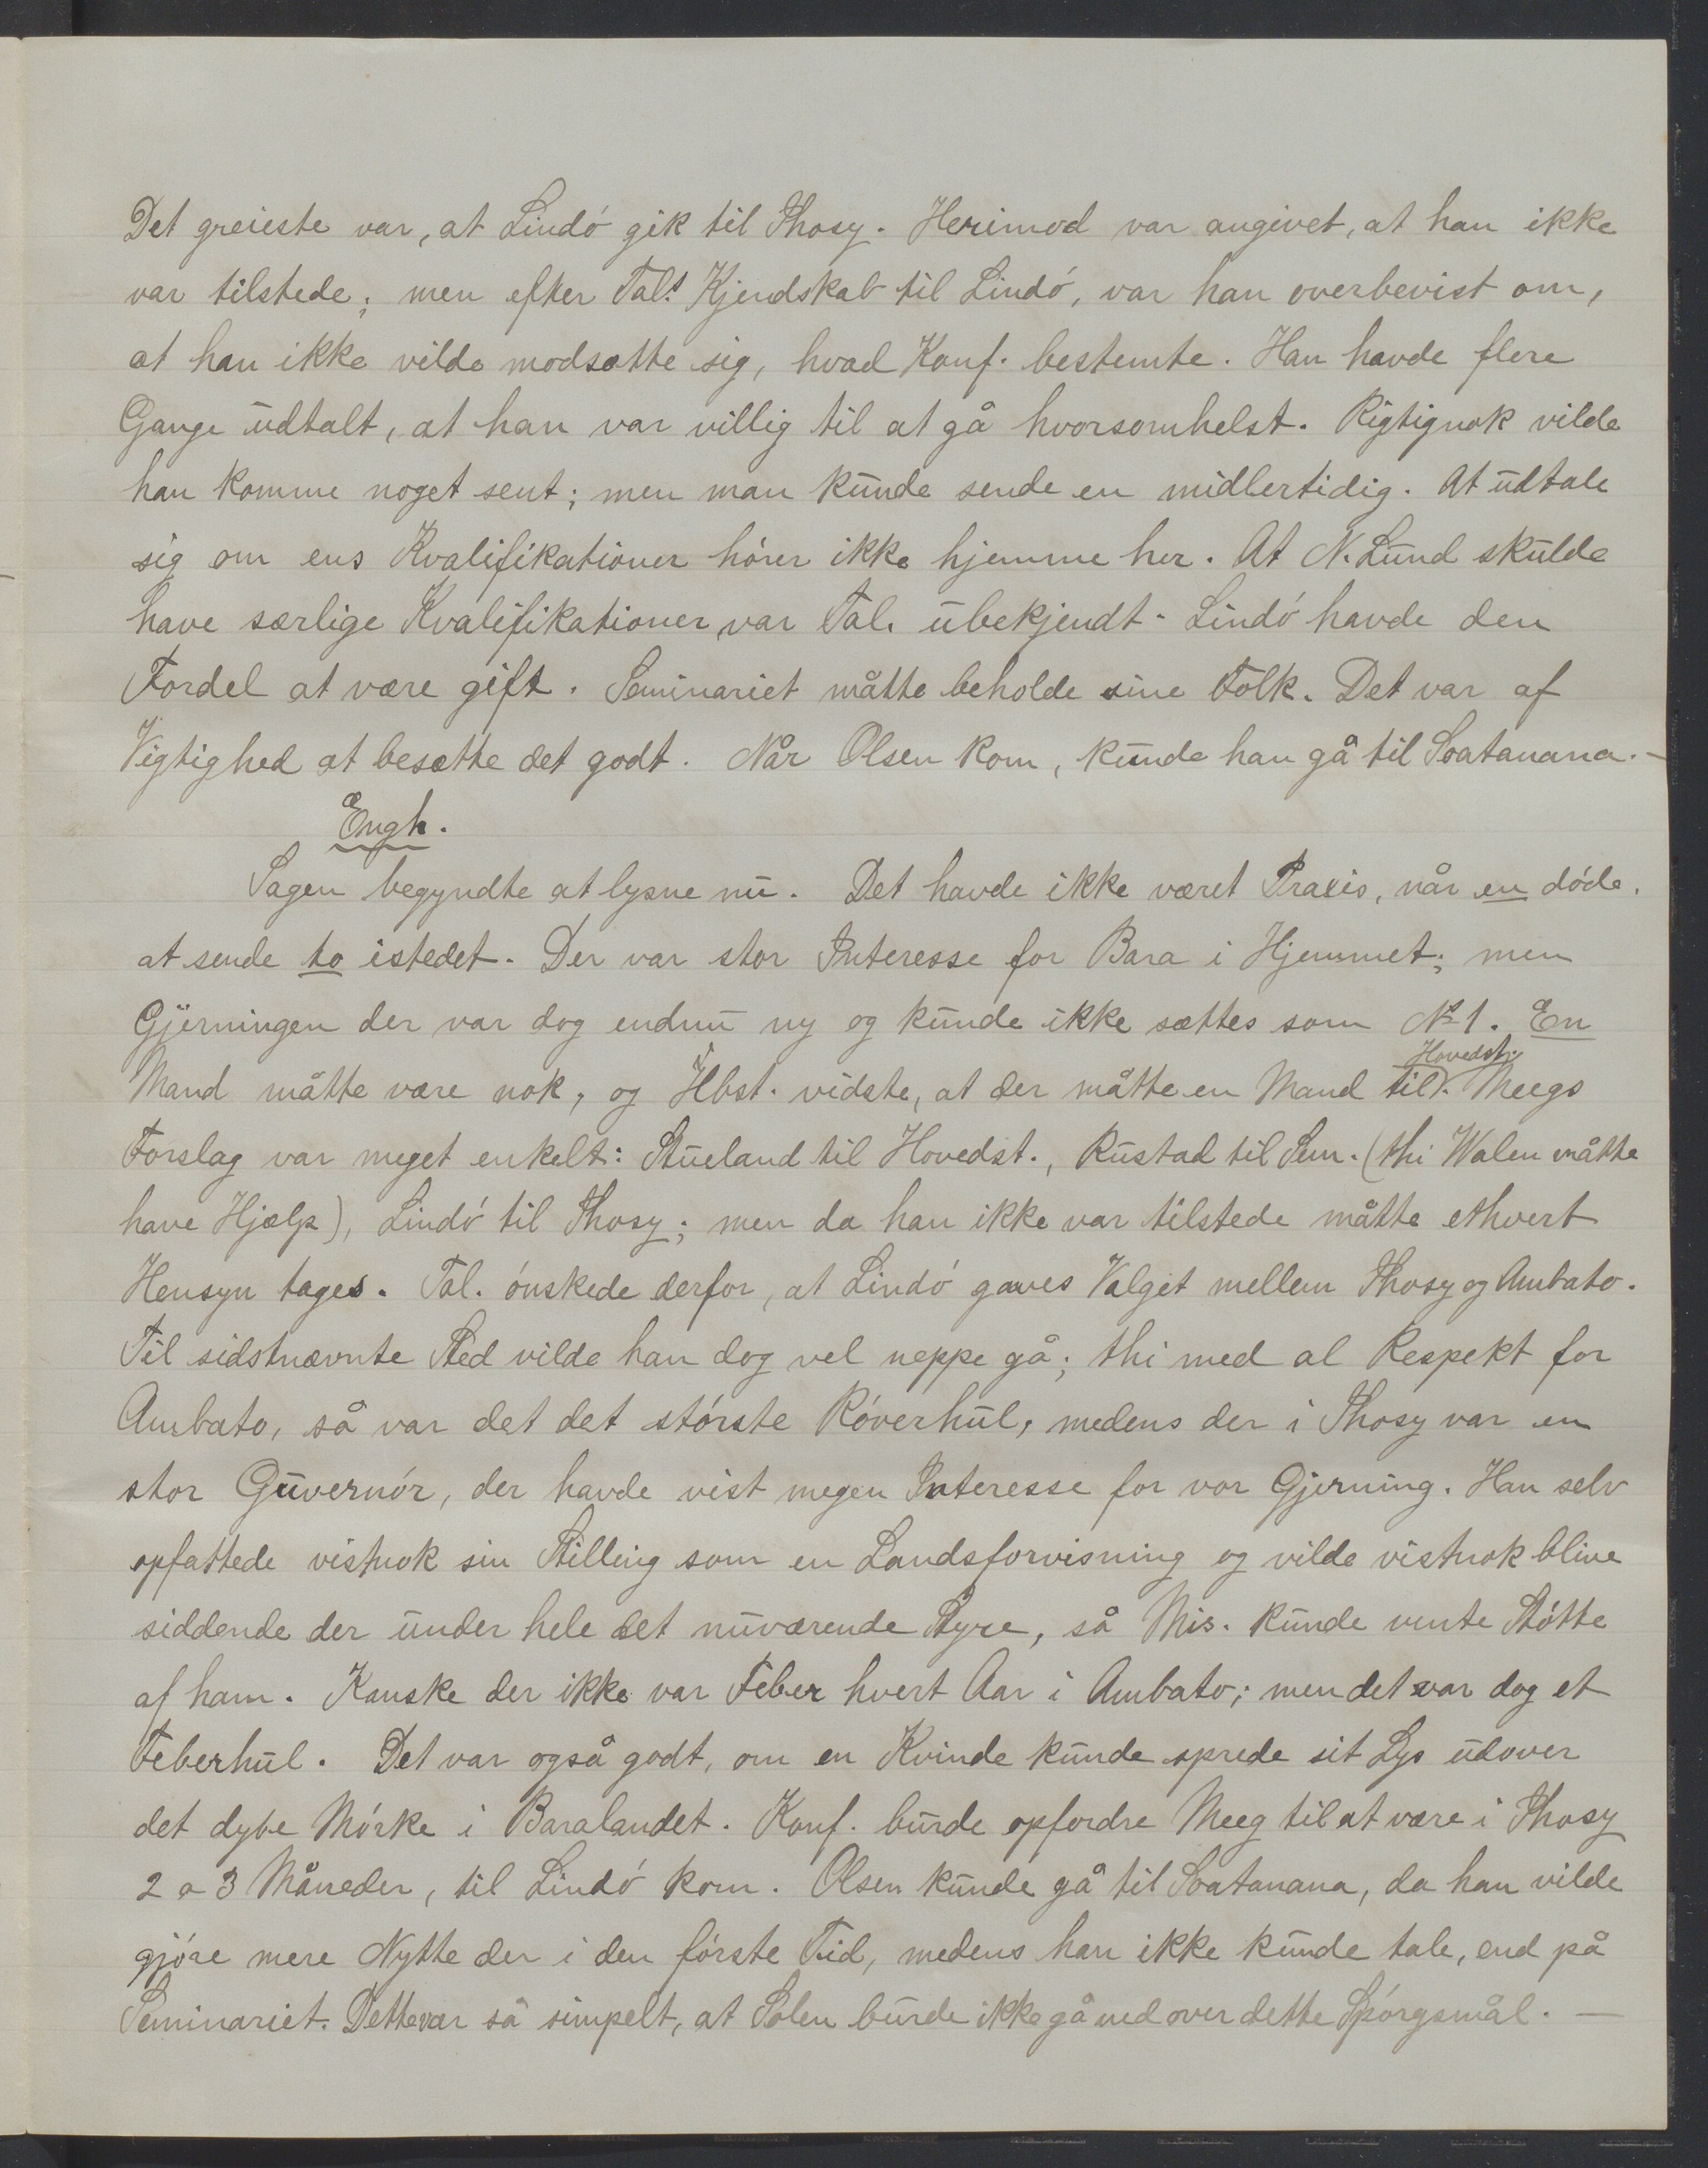 Det greieste var, at Lindö gik til Ihosy. Herimod var angivet, at han ikke
var tilstede; men efter Tal.s Kjendskab til Lindö, var han overbevist om,
at han ikke vilde modsætte sig, hvad Konf. bestemte. Han havde flere
Gange udtalt, at han var villig til at gå hvorsomhelst. Rigtignok vilde
han komme noget sent; men man kunde sende en midlertidig. At udtale
sig om ens Kvalifikationer hörer ikke hjemme her. At N. Lund skulde
have særlige Kvalifikationer, var Tal. ubekjendt. Lindö havde den
Fordel at være gift. Seminariet måtte beholde sine Folk. Det var af
Vigtighed at besætte det godt. Når Olsen kom, kunde han gå til Soatanana. —
Engh.
Sagen begyndte at lysne nu. Det havde ikke været Praxis, når en döde,
at sende to istedet. Der var stor Interesse for Bara i Hjemmet; men
Gjerningen der var dog endnu ny og kunde ikke sættes som No 1. En
Mand måtte være nok, og Hbst. vidste, at der måtte en Mand til Hovedst. Meegs
Forslag var meget enkelt: Stueland til Hovedst., Rustad til Sem. (thi Walen måtte
have Hjælp), Lindö til Ihosy; men da han ikke var tilstede måtte ethvert
Hensyn tages. Tal. önskede derfor, at Lindö gaves Valget mellem Ihosy og Ambato.
Til sidstnævnte Sted vilde han dog vel neppe gå; thi med al Respekt for
Ambato, så var det det störste Röverhul, medens der i Ihosy var en
stor Guvernör, der havde vist megen Interesse for vor Gjerning. Han selv
opfattede vistnok sin Stilling som en Landsforvisning og vilde vistnok blive
siddende der under hele det nuværende Styre, så Mis. kunde vente Stötte
af ham. Kanske der ikke var Feber hvert Aar i Ambato; men det var dog et
Feberhul. Det var også godt, om en Kvinde kunde sprede sit Lys udover
det dybe Mörke i Baralandet. Konf. burde opfordre Meeg til at være i Ihosy
2 a 3 Måneder, til Lindö kom. Olsen kunde gå til Soatanana, da han vilde
gjöre mere Nytte der i den förste Tid, medens han ikke kunde tale, end på
Seminariet. Dette var så simpelt, at Solen burde ikke gå ned over dette Spörgsmål. —